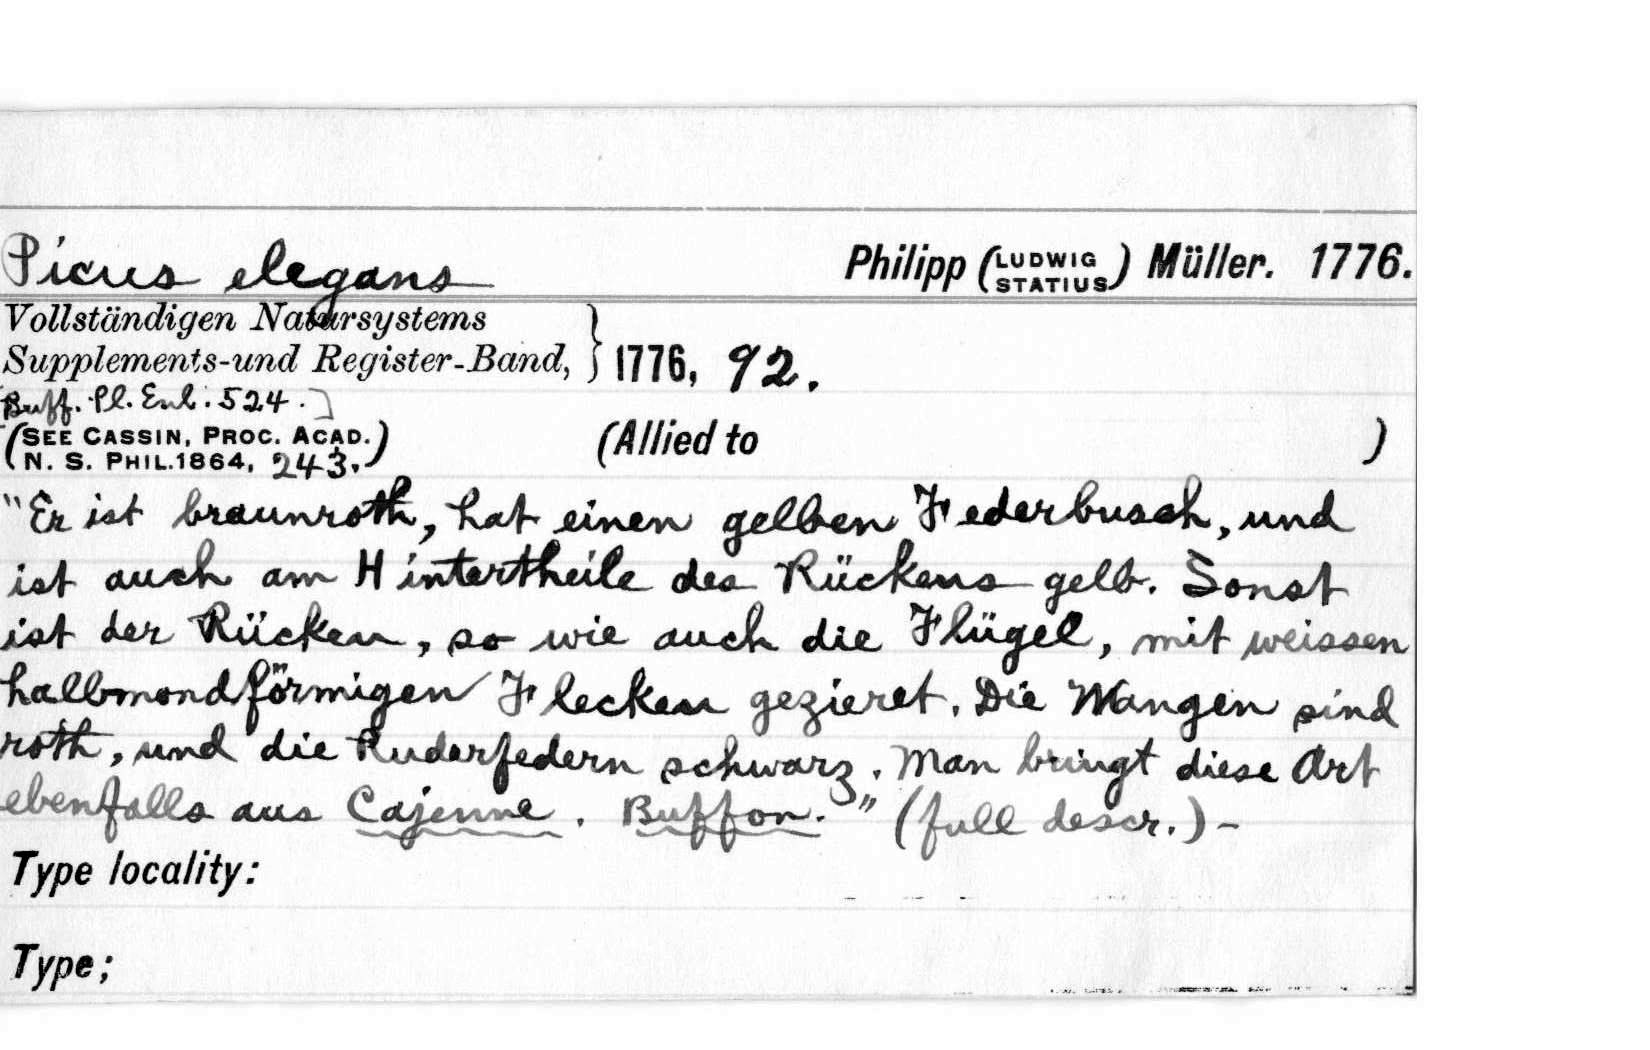 Picus elegans Philipp (LUDWIG STATIUS) Müller. 1776.
Vollständigen Natursystems
Supplements-und Register-Band, } 1776, 92.
[Buff. Pl. Enl. 524.]
(SEE CASSIN, PROC. ACAD. (Allied to )
N. S. PHIL. 1864, 243.)
"Er ist braunroth, hat einen gelben Federbusch, und
ist auch am Hintertheile des Rückens gelb. Sonst
ist der Rücken, so wie auch die Flügel, mit weissen
halbmondförmigen Flecken gezieret. Die Wangen sind
roth, und die Ruderfedern schwarz. Man bringt diese Art
ebenfalls aus Cajenne. Buffon." (full descr.) –
Type locality:
Type;